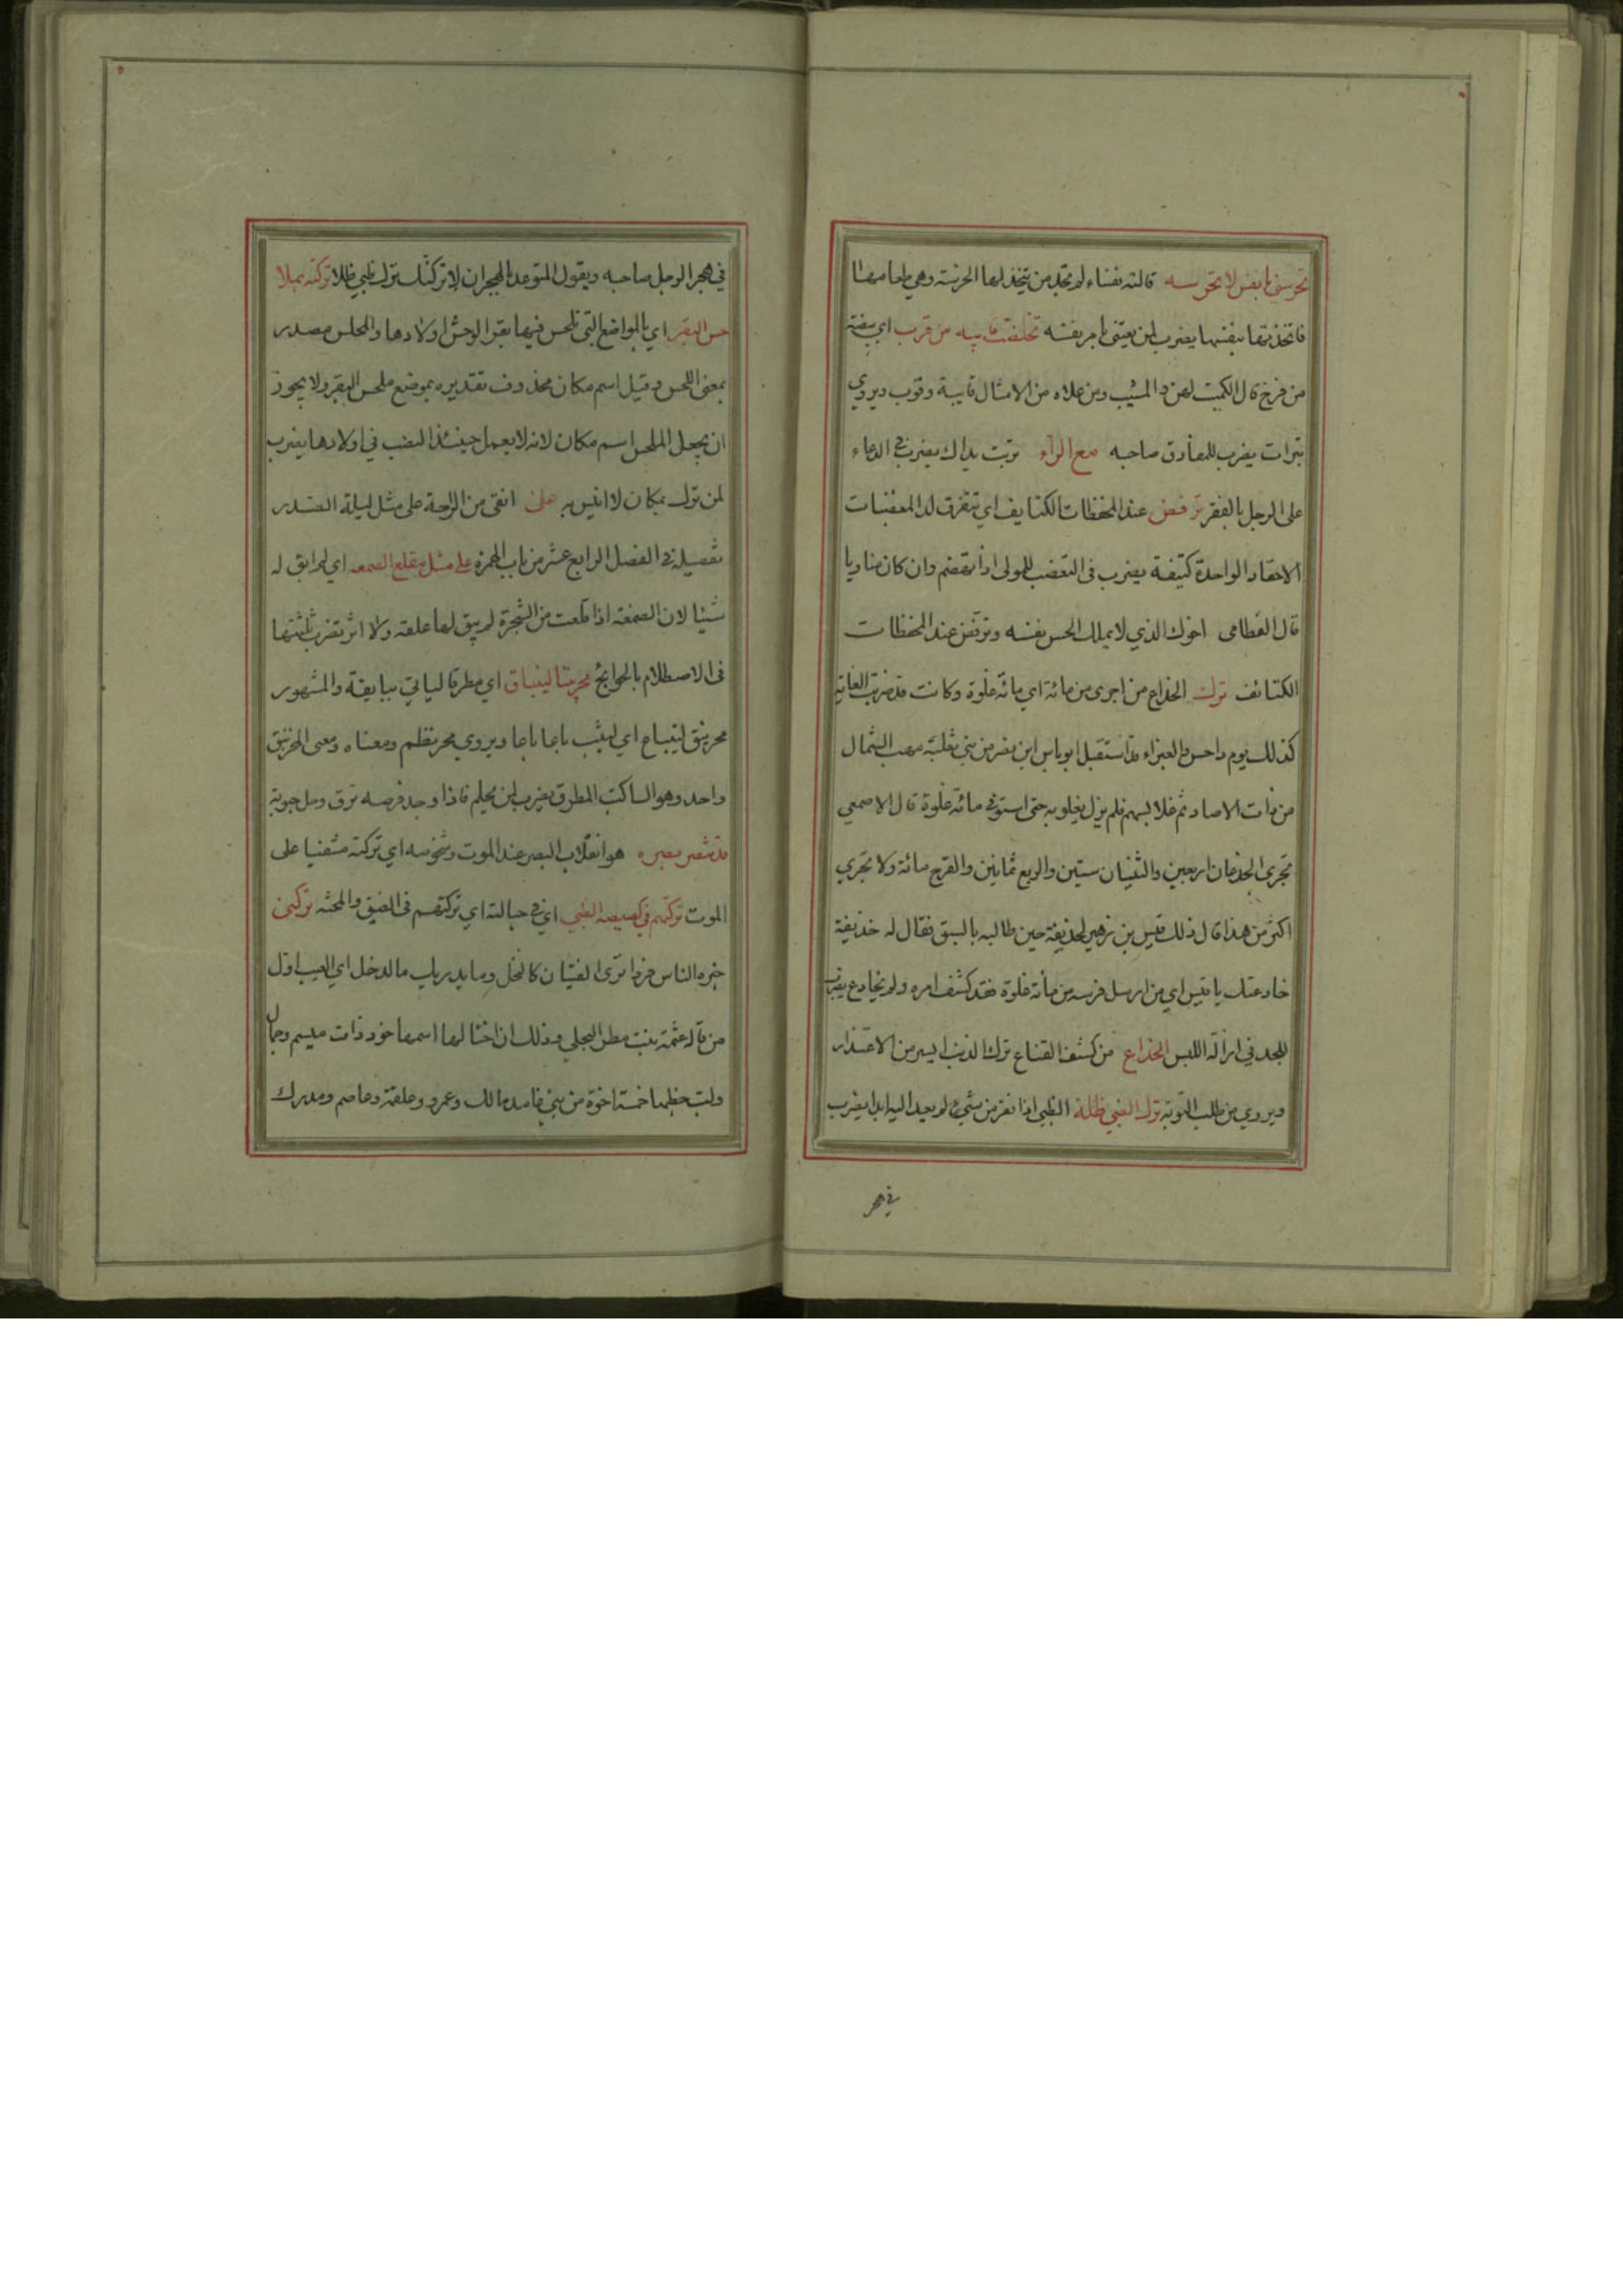 تخرسي يا نفس لا مخرسه قالته نفساء لم تجد من يتخذ لها الخرسة وهي طعامها
فاتخذتها بنفسها يضرب لمن يعتني بامر نفسه تخلصت قايبة من قوب اي بيضة
من فرخ قال الكميت لهن والمشيب ومن علاه من الامثال قايبة وقوب ويروي
تبرات يضرب للمفارق صاحبه مع الراء تربت يداك يضرب في الدعاء
على الرجل بالفقر ترفض عند المحفظات الكتايف اي تتفرق لدا المغضبات
الاحقاد الواحدة كتيفة يضرب في التعضب للمولى اذا تهضم وان كان مناويا
قال القطامى اخوك الذي لا يملك الحس نفسه وترفض عند المحفظات
الكتائف ترك الخداع من اجرى من مائة اي مائة غلوة وكانت
كذلك يوم داحس والغبراء من بني ثعلبة مهب الشمال
من ذات الاصاد ثم غلا بسهم فلم يزل يغلو به حتى استوفى مائة غلوة قال الاصمعي
تجرى الجذعان اربعين والثنيان ستين والربع ثمانين والقرح مائة ولا تجري
اكثر من هذا قال ذلك قيس بن زهير لحذيفة حين طالبه بالسبق فقال له حذيفة
خادعتك يا قيس اي من ارسل فرسه من مائة غلوة فقد كشف امره ولم يخادع يضرب
للجد في ازالة اللبس الخداع من كشف القناع ترك الذنب ايسر من الاعتذار
ويروي من طلب التوبة ترك الظبي ظله الظبي اذا نفر من شيء لم يعد اليه ابدا يضرب
في هجر
في هجر الرجل صاحبه ويقول المتوعد بالهجران لاتركنك ترك ظبي ظلا تركته بملا
حس البقر اي بالمواضع التي تلحس فيها بقر الوحش اولادها والملحس مصدر
بمعنى اللحس وقيل اسم مكان محذوف تقديره بموضع ملحس البقر ولا يجوز
ان يجعل الملحس اسم مكان لانه لا يعمل حينئذ النصب في اولادها يضرب
لمن ترك بمكان لا انيس به على انقى من الراحة على مثل ليلة الصدر
تفصيله في الفصل الرابع عشر من باب الهمزة على مثل مقلع الصمغه اي لم ابق له
شيئا لان الصمغة اذا قلعت من الشجرة لم يبق لها علقة ولا اثر تضرب ثلثتها
في الاصطلام بالحوايج محرنبقا لينباق اي مطرقا لياتي ببايقة والمشهور
محرنبق لينباع اي ليثب باعا باعا ويروي محرنظم ومعناه ومعنى المحرنبق
واحد وهو الساكت المطرق يضرب لمن يحلم فاذا وجد فرصه نزق وحل حبوته
قد شصر بصره هو انقلاب البصر عند الموت وشخوصه اي تركته مشفيا على
الموت تركتهم في كصيصه الظبي اي في حبالته اي تركتهم في الضيق تركتن
خبره الناس فردا ترى الفتيان كالنخل وما يدريك ما الدخل اي العيب اول
من قاله عثمة بنت مطرود البجلي وذلك ان اختا لها اسمها خود ذات ميسم وجمال
ولب خطبها خمسة اخوة من بني غامد مالك وعمرو وعلقمة وعاصم ومدرك